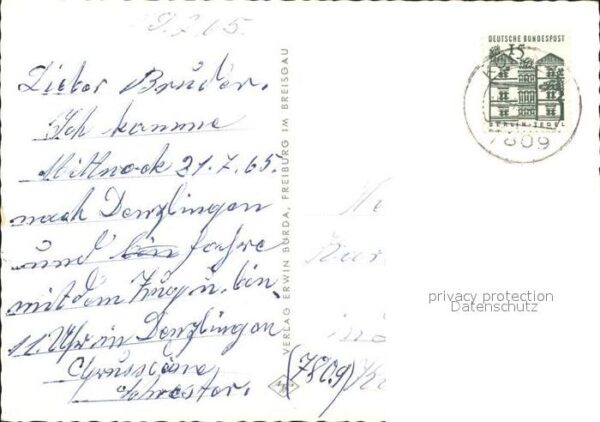 19.7.65.
Lieber Bruder.
Ich komme
Mittwoch 21.7.65.
nach Denzlingen
und bin fahre
mit dem Zug u. bin
11. Uhr in Denzlingen
Gruss deine
Schwester.
VERLAG ERWIN BURDA, FREIBURG IM BREISGAU
DEUTSCHE BUNDESPOST
15
BERLIN-TEGEL
7809
privacy protection
Datenschutz
(7809)